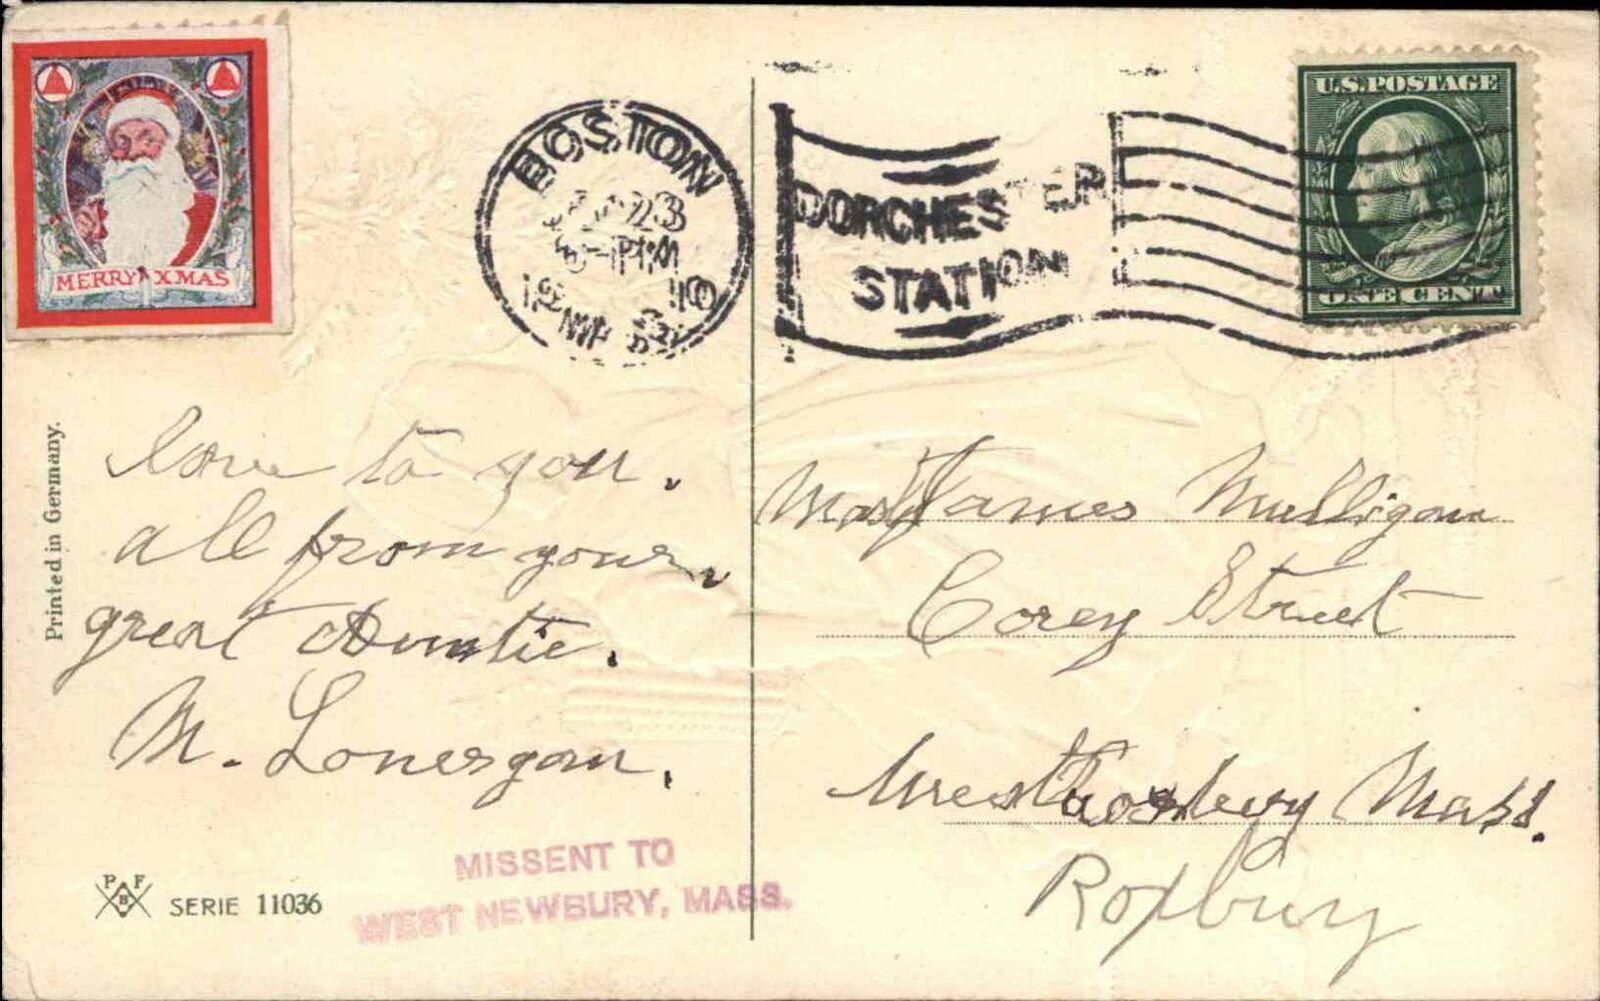 MERRY XMAS
BOSTON
23
PM
10
DORCHESTER
STATION
U.S. POSTAGE
ONE CENT
Printed in Germany.
love to you.
all from your
great Auntie.
M. Lonergan.
James Mulligan
Corey Street
West Roxbury Mass.
Roxbury
MISSENT TO
WEST NEWBURY, MASS.
P F
B
SERIE 11036